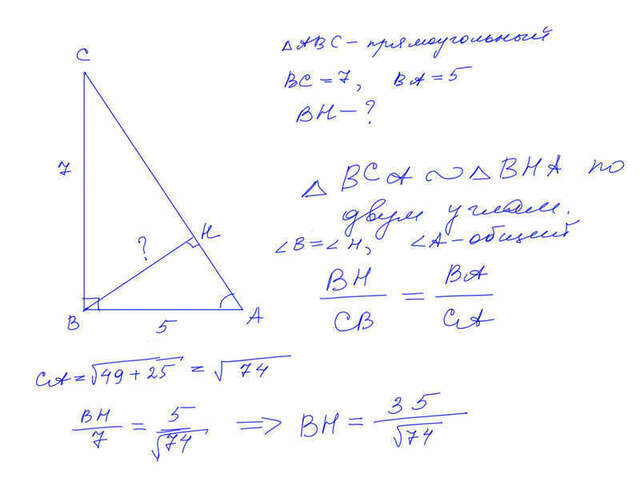 C
△ABC – прямоугольный
BC = 7, BA = 5
BH – ?
7
△BCA ∾ △BHA по
двум углам.
∠B = ∠H, ∠A – общий
H
?
BH/CB = BA/CA
B
5
A
CA = √49 + 25 = √74
BH/7 = 5/√74 ⟹ BH = 35/√74